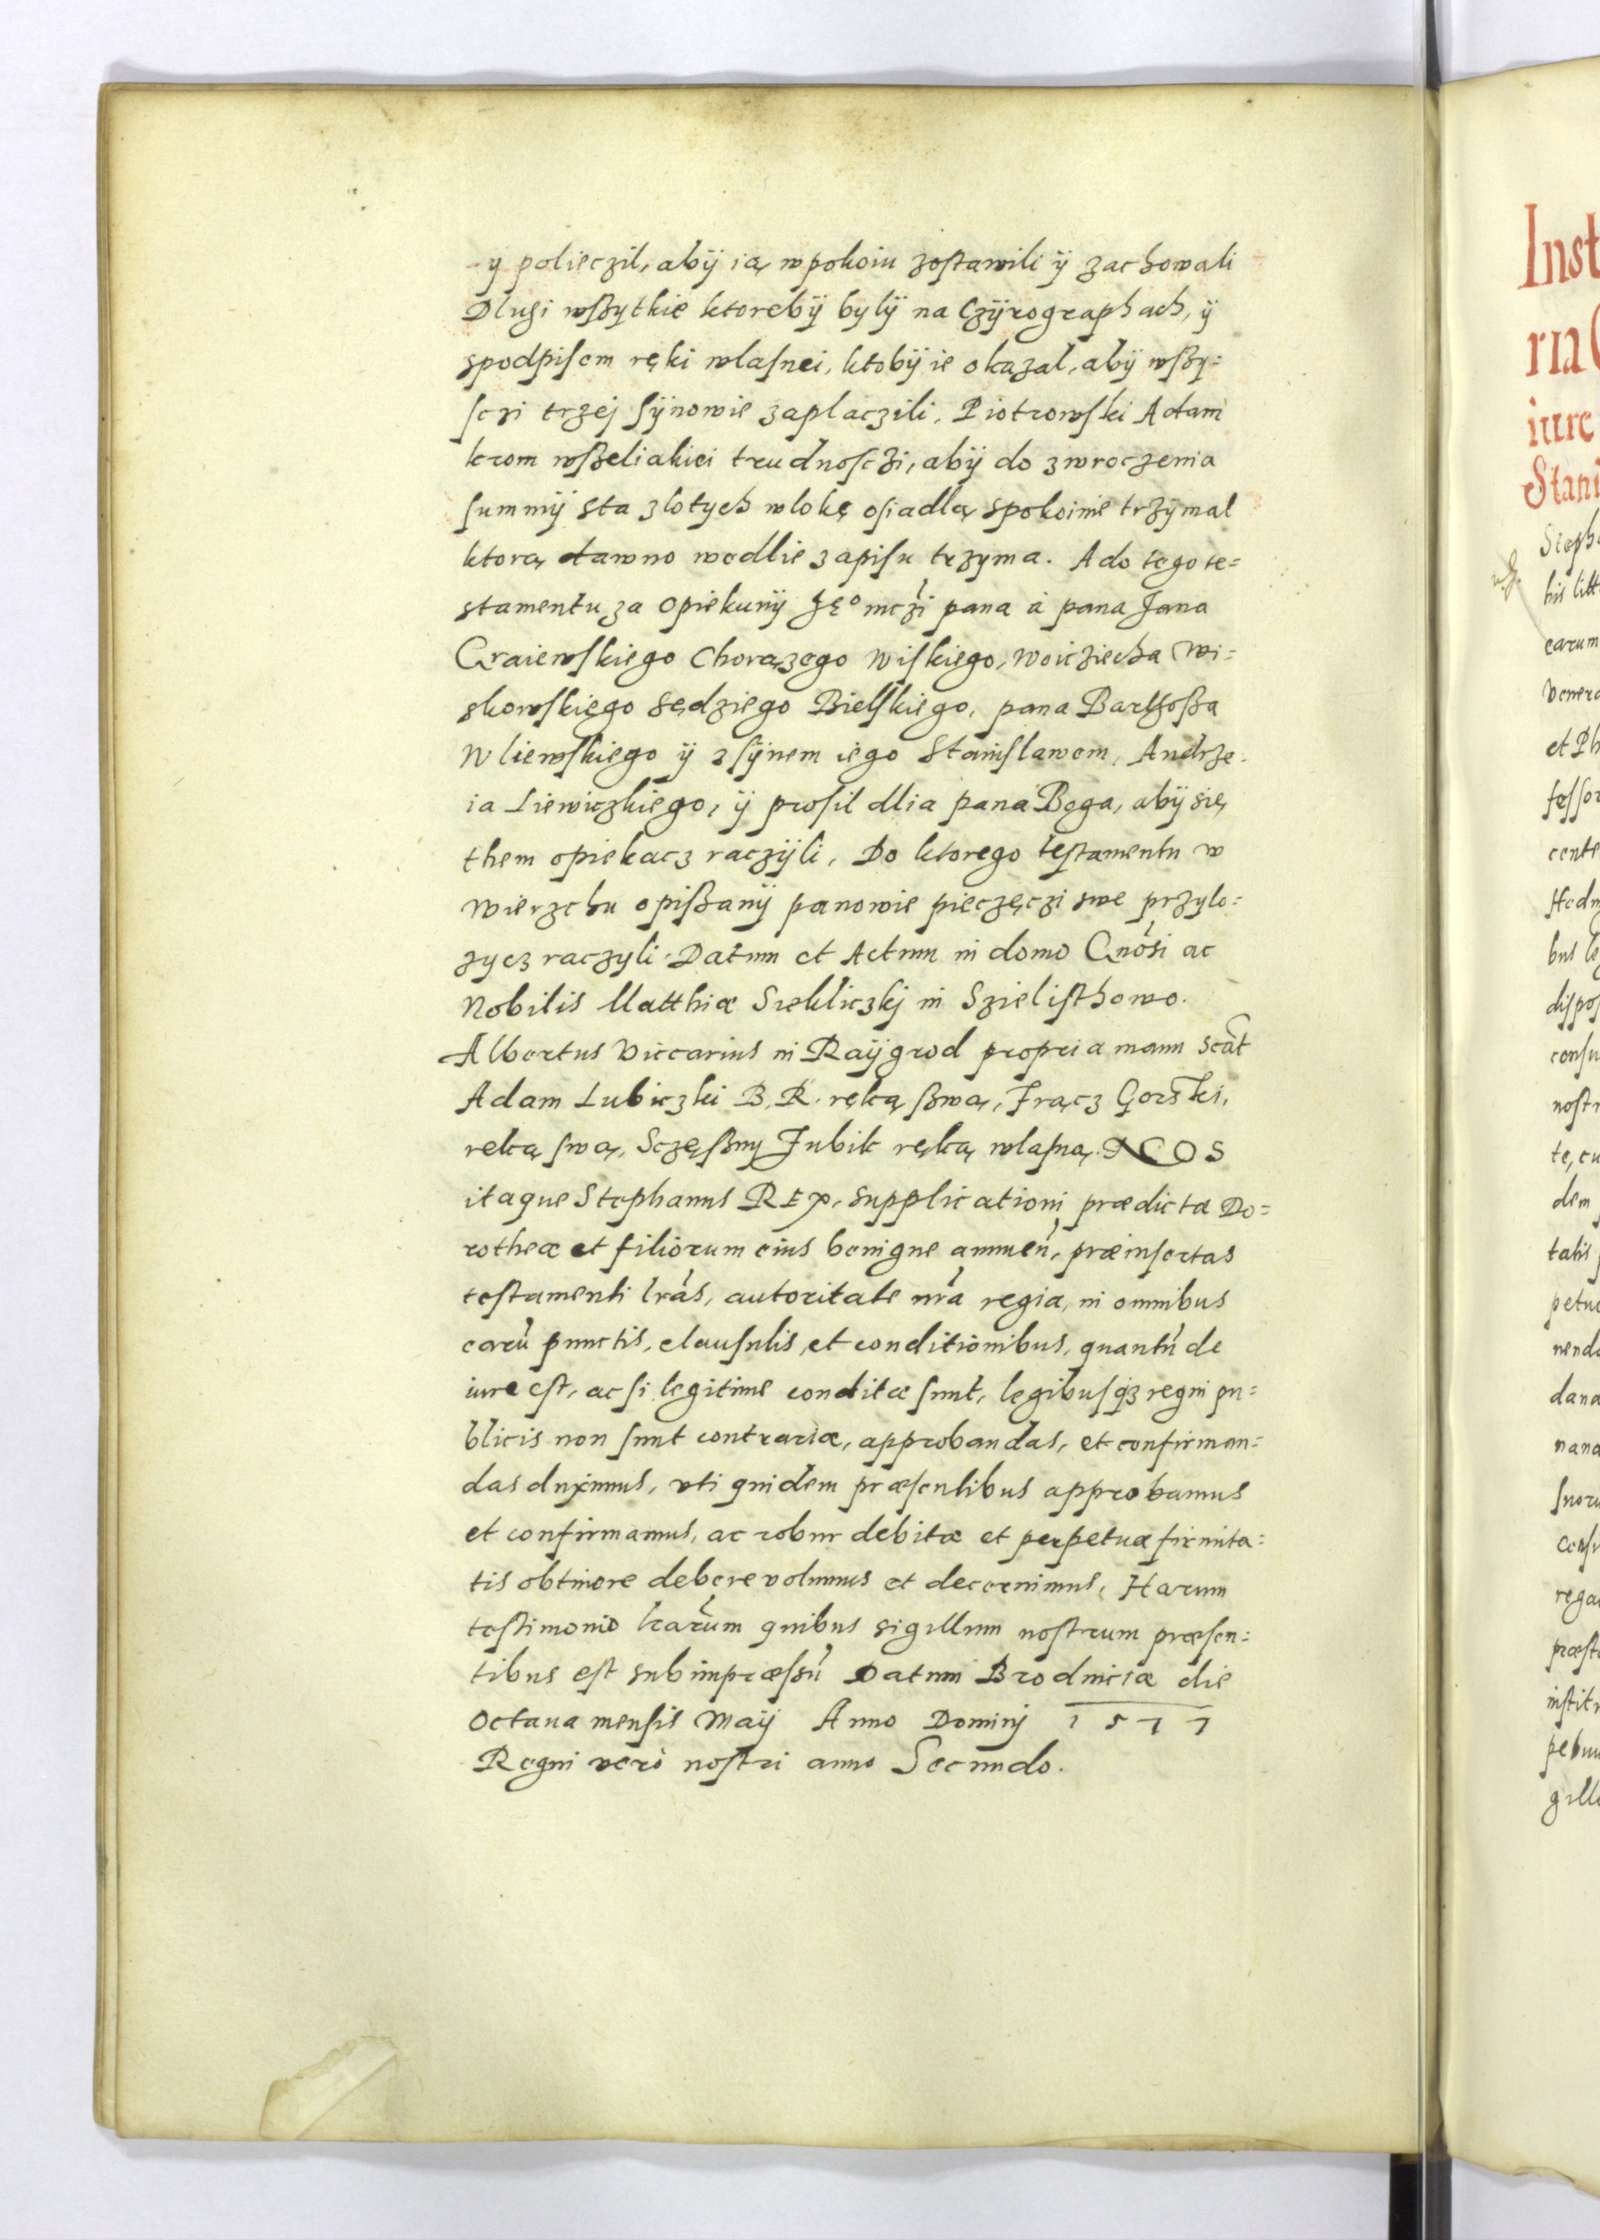 y polieczil, abÿ ią wpokoiu zostawili ÿ zachowali
Dlugi wßytkie ktorebÿ bylÿ na Czÿrographach, ÿ
spodpisem ręki wlasnei, ktobÿ ie okazal, abÿ wßy=
sczi trzej sÿnowie zaplaczili, Piotrowski Adam
krom wßeliakiei trudnosczi, abÿ do zwroczenia
summÿ sta zlotych wlokę osiadlą spokoinie trzÿmal
ktorą dawno wedlie zapisu trzyma. A do tego te=
stamentu za opiekunÿ Jęo mczi pana à pana Jana
Craiewskiego Chorązego Wiskiego, Woiciecha Wi=
skowskiego Sędziego Bielskiego, pana Barthoßa
Wliewskiego ÿ zsÿnem iego Stanislawem, Andrze=
ia Liewiczkiego, ÿ prosil dlia pana Boga, abÿ się
them opiekacz raczÿli, Do ktorego testamentu w
wierzchu opißanÿ panowie pieczęczi swe przylo=
zycz raczyli. Datum et Actum in domo Gnosi ac
Nobilis Matthiæ Siekliczkj in Szielisthowo.
Albertus Viccarius in Raÿgrod propria manu scat
Adam Lubiczki B. R. ręką ßwą, Frącz Gorski,
reką swą, Sczęßny Jubik ręką wlasną. NOS
itaque Stephanus REX, supplicationi prædictæ Do=
rotheæ et filiorum eius benigne annuen, præinsertas
testamenti lras, autoritate nra regia, in omnibus
earu punctis, clausulis, et conditionibus, quantu de
iure est, ac si legitime conditæ sunt, legibusqz regni pu=
blicis non sunt contrariæ, approbandas, et confirman=
das duximus, vti quidem præsentibus approbamus
et confirmamus, ac robur debitæ et perpetuæ firmita=
tis obtinere debere volumus et decernimus, Harum
testimonio lrarum quibus sigillum nostrum præsen=
tibus est subimpræssu Datum Brodniciæ die
Octaua mensis Maÿ Anno Dominj 1577
Regni verò nostri anno Secundo.